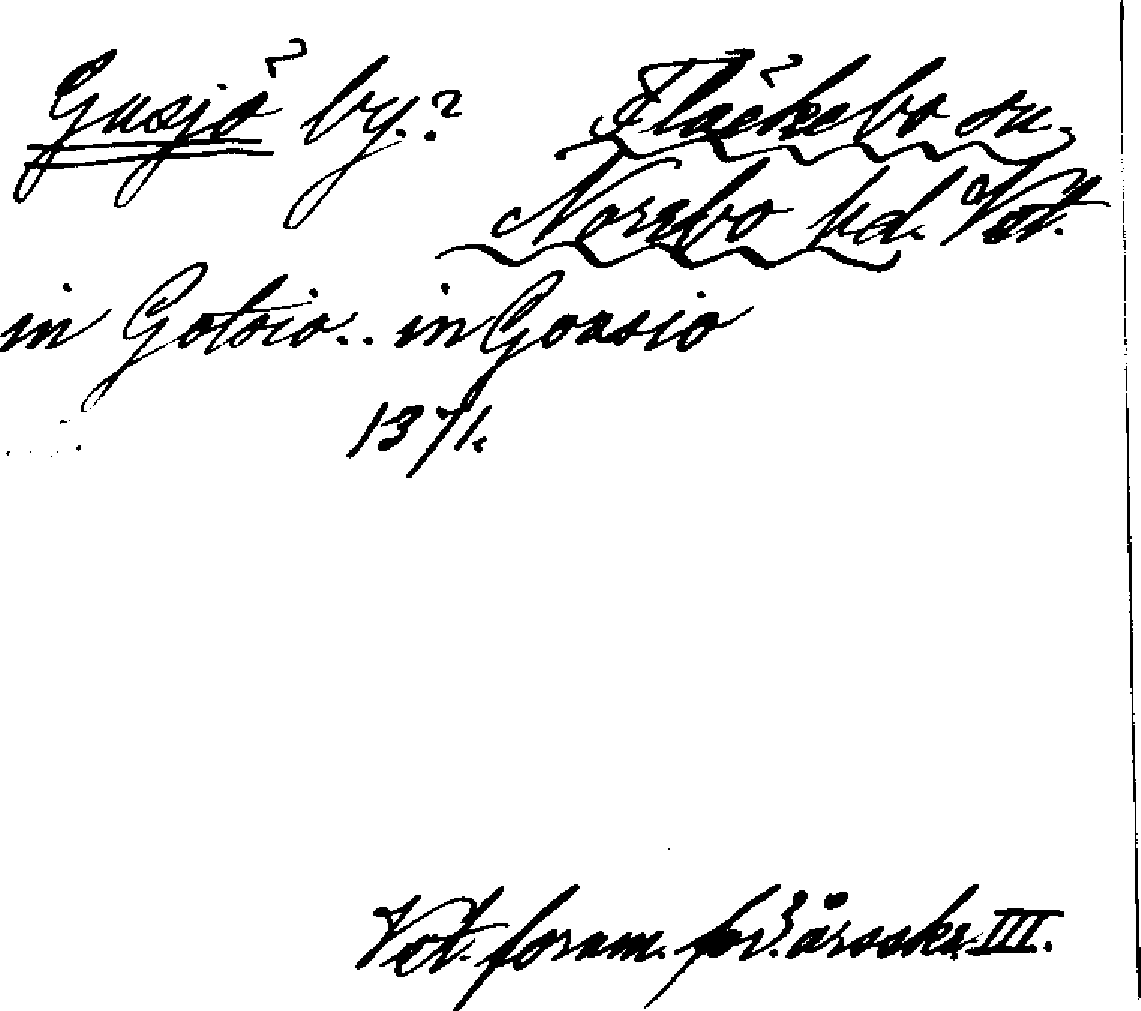 Gusjö by.? Fläckebo sn,
Norrbo hd. Vstm.
in Gotsio.. in Goasio
1371.
Vst. fornm. för. årsskr. III.